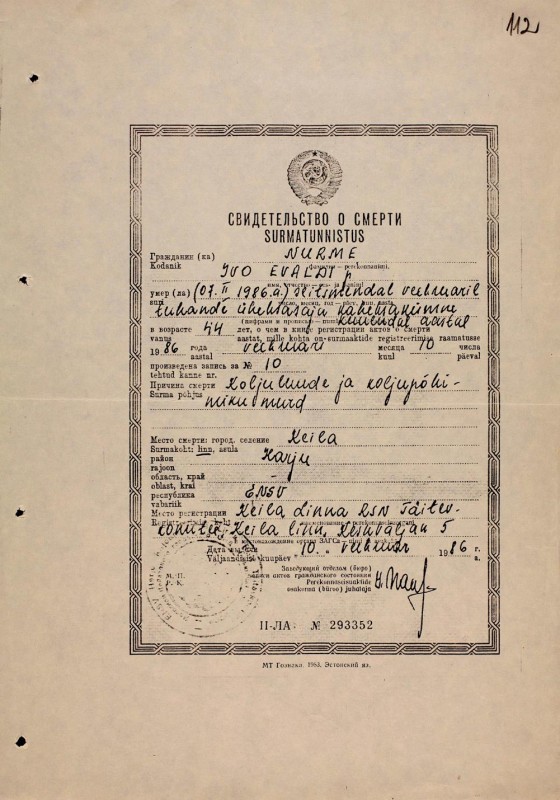 112
СВИДЕТЕЛЬСТВО О СМЕРТИ
SURMATUNNISTUS
Гражданин (ка) NURME
Kodanik фамилия — perekonnanimi,
IVO EVALDI p
умер (ла) (07. II 1986.a.) seitsmendal veebruaril
suri число, месяц, год — päev, kuu, aasta
tuhande üheksasaja kaheksakümne
(цифрами и прописью — kuuendal aastal
в возрасте 44 лет, о чем в книге регистрации актов о смерти
vanus aastat, mille kohta on surmaaktide registreerimise raamatusse
1986 года veebruari месяца 10 числа
aastal kuul päeval
произведена запись за № 10
tehtud kanne nr.
Причина смерти Koljuluude ja koljupõhi-
Surma põhjus miku murd
Место смерти: город, селение Keila
Surmakoht: linn, asula
район Harju
rajoon
область, край
oblast, krai
республика ENSV
vabariik
Место регистрации Keila Linna RSN Täitev-
komitee, Keila linn, Keskväljak 5
нахождение органа ЗАГСа
Дата выдачи "10." veebruar 1986 г.
Väljaandmise kuupäev a.
Заведующий отделом (бюро)
записи актов гражданского состояния
М. П.
P. K.
Perekonnaseisuaktide
osakonna (büroo) juhataja
II-ЛА № 293352
МТ Гознака. 1983. Эстонский яз.